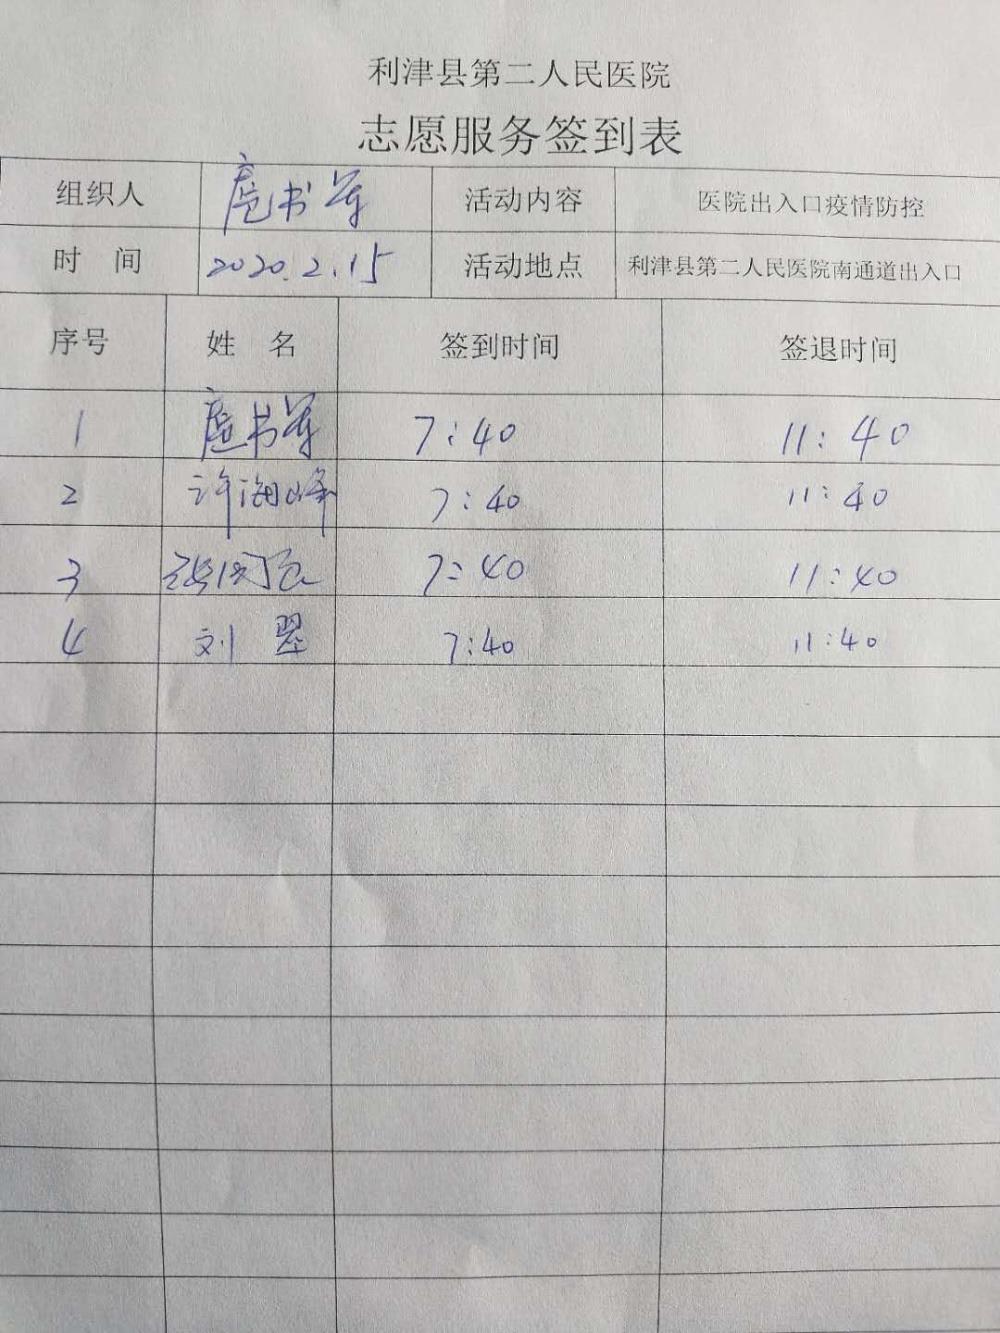 利津县第二人民医院
志愿服务签到表
组织人 书 活动内容 医院出入口疫情防控
时 间 2020.2.15 活动地点 利津县第二人民医院南通道出入口
序号 姓 名 签到时间 签退时间
1 书 7:40 11:40
2 许海峰 7:40 11:40
3 张 7:40 11:40
4 刘 翠 7:40 11:40